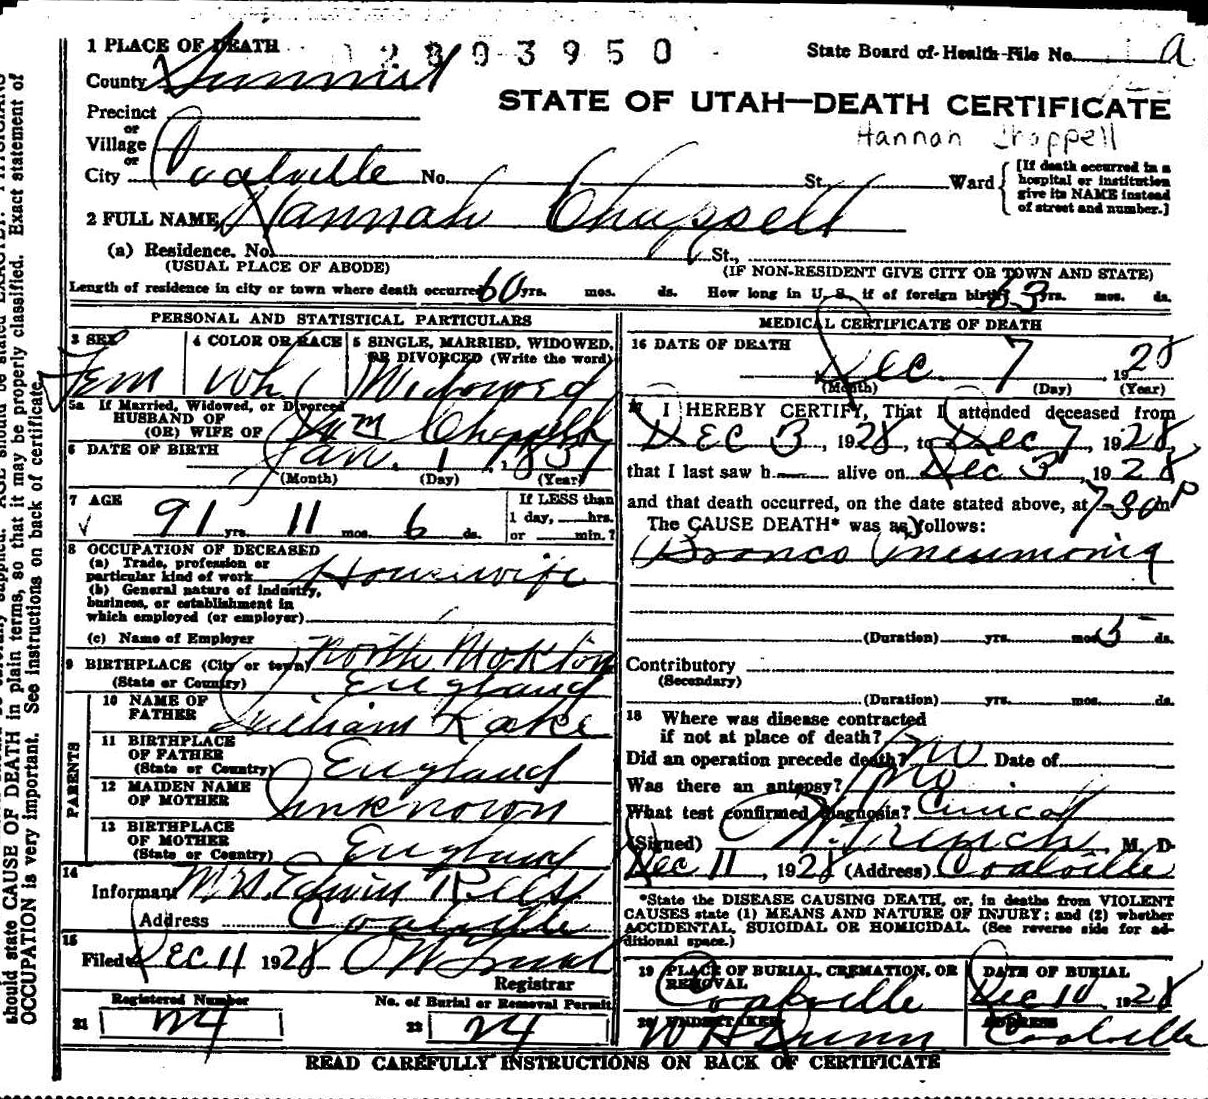 1 PLACE OF DEATH
2893950
State Board of Health File No. a
County Summit
STATE OF UTAH—DEATH CERTIFICATE
Precinct
Hannah Chappell
or
Village
or
City Coalville No. St. Ward
[If death occurred in a
hospital or institution
give its NAME instead
of street and number.]
2 FULL NAME Hannah Chappell
(a) Residence. No. St.,
(USUAL PLACE OF ABODE) (IF NON-RESIDENT GIVE CITY OR TOWN AND STATE)
Length of residence in city or town where death occurred 60 yrs. mos. ds. How long in U. S. if of foreign birth? 63 yrs. mos. ds.
PERSONAL AND STATISTICAL PARTICULARS
3 SEX 4 COLOR OR RACE 5 SINGLE, MARRIED, WIDOWED,
OR DIVORCED (Write the word)
Fem Wh Widowed
5a If Married, Widowed, or Divorced
HUSBAND OF
(OR) WIFE OF Wm Chappell
6 DATE OF BIRTH Jan. 1, 1837
(Month) (Day) (Year)
7 AGE If LESS than
91 yrs. 11 mos. 6 ds. 1 day, hrs.
or min.?
8 OCCUPATION OF DECEASED
(a) Trade, profession or
particular kind of work Housewife
(b) General nature of industry,
business, or establishment in
which employed (or employer)
(c) Name of Employer
9 BIRTHPLACE (City or town) North
(State or Country) England
PARENTS
10 NAME OF
FATHER William
11 BIRTHPLACE
OF FATHER
(State or Country) England
12 MAIDEN NAME
OF MOTHER Unknown
13 BIRTHPLACE
OF MOTHER
(State or Country) England
14
Informant Mrs. Edwin Rees
Address Coalville
15
Filed Dec 11 1928
Registrar
Registered Number No. of Burial or Removal Permit
21 24 22 24
MEDICAL CERTIFICATE OF DEATH
16 DATE OF DEATH
Dec 7, 1928
(Month) (Day) (Year)
17 I HEREBY CERTIFY, That I attended deceased from
Dec 3, 1928, to Dec 7, 1928,
that I last saw h alive on Dec 3, 1928
and that death occurred, on the date stated above, at 7-30 Pm
The CAUSE DEATH* was as follows:
Bronco Pneumonia
(Duration) yrs. mos. 5 ds.
Contributory
(Secondary)
(Duration) yrs. mos. ds.
18 Where was disease contracted
if not at place of death?
Did an operation precede death? no Date of
Was there an autopsy? no
What test confirmed diagnosis? Clinical
(Signed) M. D.
Dec 11, 1928 (Address) Coalville
*State the DISEASE CAUSING DEATH, or, in deaths from VIOLENT
CAUSES state (1) MEANS AND NATURE OF INJURY; and (2) whether
ACCIDENTAL, SUICIDAL OR HOMICIDAL. (See reverse side for ad-
ditional space.)
19 PLACE OF BURIAL, CREMATION, OR DATE OF BURIAL
REMOVAL
Coalville Dec 10, 1928
20 UNDERTAKER ADDRESS
W H Dunn Coalville
READ CAREFULLY INSTRUCTIONS ON BACK OF CERTIFICATE
should state CAUSE OF DEATH in plain terms, so that it may be properly classified. Exact statement of
OCCUPATION is very important. See instructions on back of certificate.